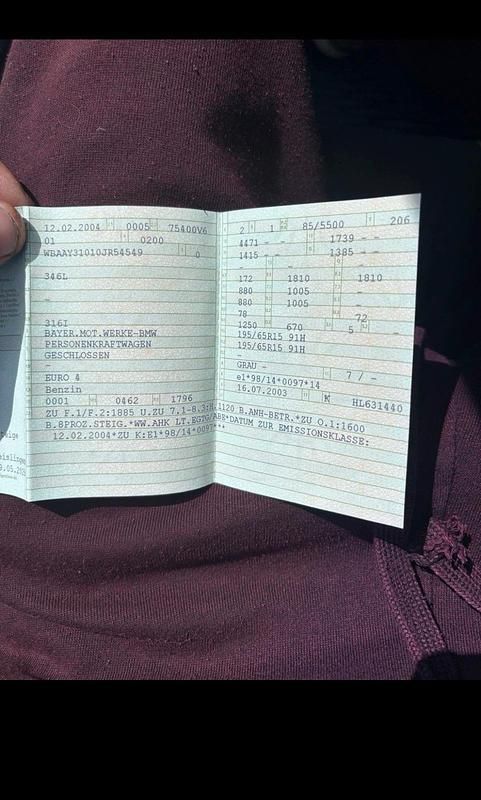 12.02.2004 0005 75400V6
01 0200
WBAAY31010JR54549 0
346L
–
316I
BAYER.MOT.WERKE-BMW
PERSONENKRAFTWAGEN
GESCHLOSSEN
–
EURO 4
Benzin
0001 0462 1796
2 1 85/5500 206
4471 – – 1739 – –
1415 – – 1385 – –
– –
172 1810 1810
880 1005 –
880 1005 –
78 72
1250 670 5 –
195/65R15 91H
195/65R15 91H
–
GRAU – 7 / –
e1*98/14*0097*14
16.07.2003 K HL631440
ZU F.1/F.2:1885 U.ZU 7.1-8.3:H.1120 B.ANH-BETR.*ZU O.1:1600
B.8PROZ.STEIG.*WW.AHK LT.EGTG/ABE*DATUM ZUR EMISSIONSKLASSE:
12.02.2004*ZU K:E1*98/14*0097***